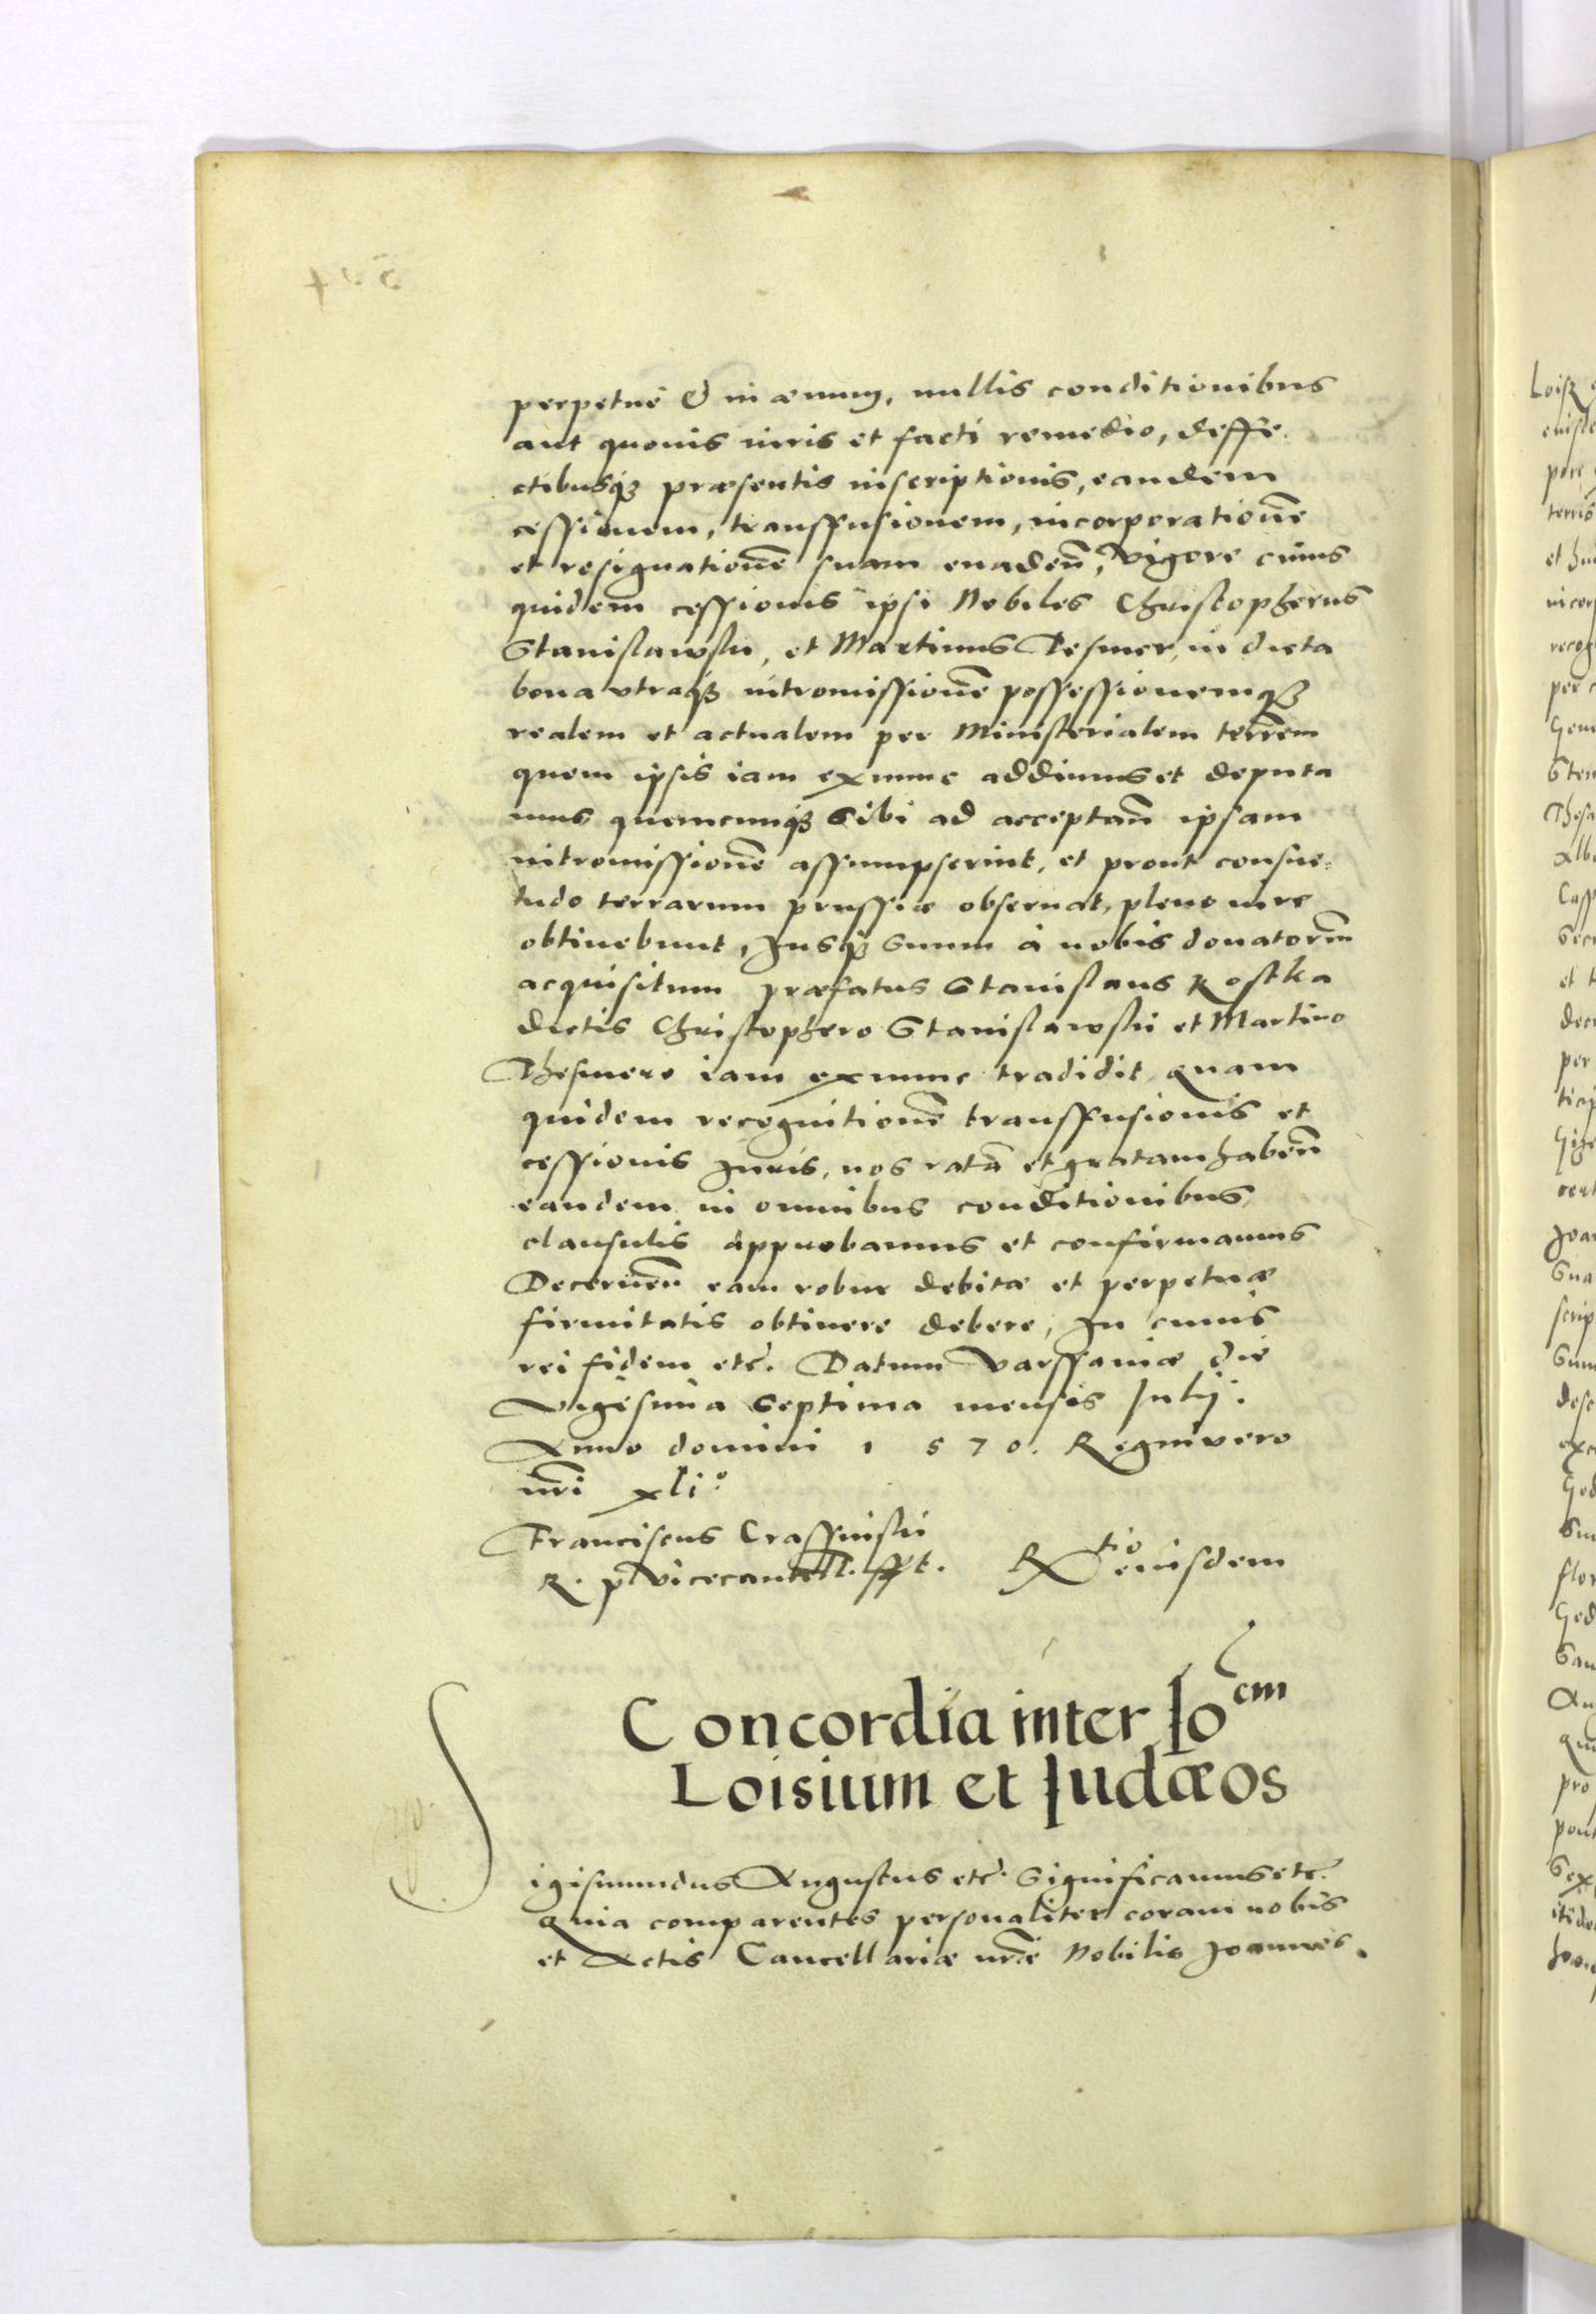 perpetuè & in æuum, nullis conditionibus
aut quouis iuris et facti remedio, deffe
ctibusq3 præsentis inscriptionis, eandem
cessionem, transfusionem, incorporationē
et resignationē suam euadeñ, Vigore cuius
quidem cessionis ipsi Nobiles Christopherus
Stanislawski, et Martinus Tesmer, in dicta
bona vtraq3 intromissionē possessionemq3
realem et actualem per Ministerialem terrēm
quem ipsis iam ex nunc addimus et deputa
mus quemcunq3 Sibi ad acceptañ ipsam
intromissionē assumpserint, et prout consue=
tudo terrarum prussiæ obseruat, pleno iure
obtinebunt, Jusq3 Suum à nobis donatoriū
acquisitum præfatus Stanislaus Kostka
dictis Christophero Stanislawski et Martino
Thesmero iam ex nunc tradidit, quam
quidem recognitionē transfusionis et
cessionis Juris, nos ratā et gratam habeñ
eandem in omnibus conditionibus
clausulis approbamus et confirmamus
Decerneñ eam robur debitæ et perpetuæ
firmitatis obtinere debere, In cuius
rei fidem etc. Datum Varssauiæ die
Vigesima Septima mensis Julij.
Anno domini 1570. Regni vero
nrī xli°
Franciscus Crassinski
R. p Vicecancell. sspt. Rtio eiusdem
Concordia inter Joem
Loisium et Judæos
Sigismundus Augustus etc. Significamus etc.
Quia comparentes personaliter coram nobis
et Actis Cancellariæ nrāe Nobilis Joannes.